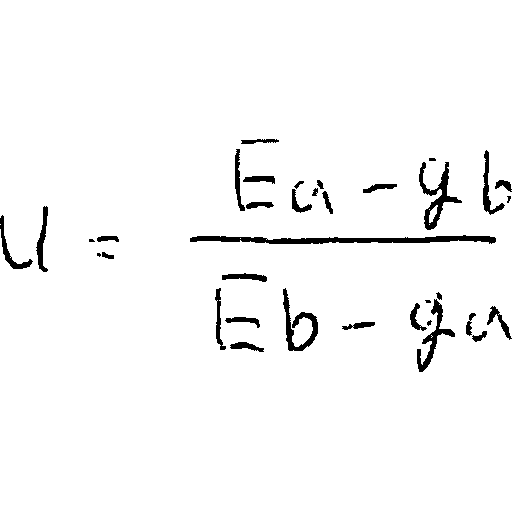 u = \frac{Ea - yb}{Eb - ya}